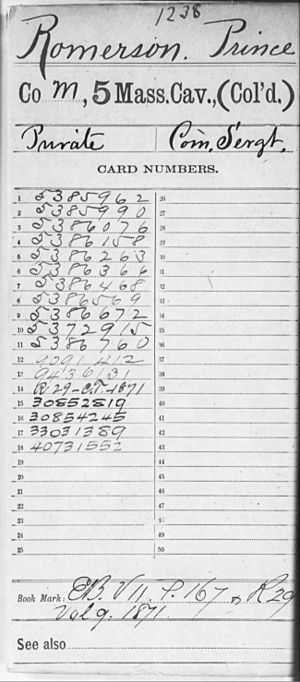 1238
Romerson. Prince
Co M, 5 Mass. Cav., (Col'd.)
Private Com. Sergt.
CARD NUMBERS.
1 5385962 26
2 5385990 27
3 5386076 28
4 5386158 29
5 5386263 30
6 5386366 31
7 5386468 32
8 5386569 33
9 5386672 34
10 5372915 35
11 5386760 36
12 9091412 37
13 9436131 38
14 R 29-C.T.-1871 39
15 30852819 40
16 30854245 41
17 33031389 42
18 40731552 43
19 44
20 45
21 46
22 47
23 48
24 49
25 50
Book Mark: EB. V 11. P. 167 & R 29
Vol 9. 1871
See also